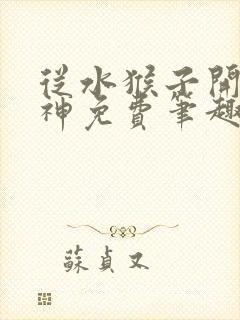 從水猴子開
神免費筆趣
蘇貞又